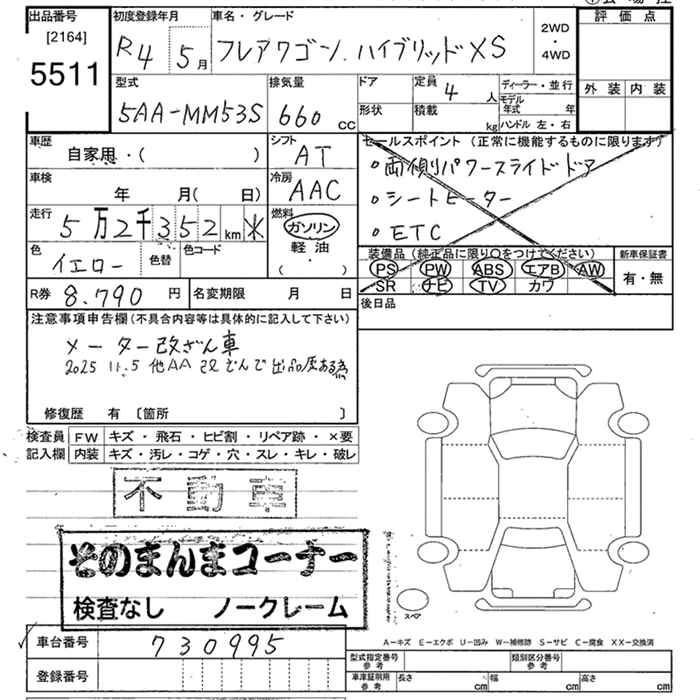 出品番号
[2164]
5511
初度登録年月
R4 5月
車名・グレード
フレアワゴン ハイブリッドXS
2WD
・
4WD
評価点
外装 内装
型式
5AA-MM53S
排気量
660 CC
ドア
形状
定員 4人
積載 kg
ディーラー・並行
モデル年式 年
ハンドル 左・右
車歴
自家用・( )
シフト
AT
車検
年 月( 日)
冷房
AAC
走行
5万2千352km
燃料
ガソリン
軽油
( ・ )
色
イエロー
色替
色コード
R券 8.790 円
名変期限 月 日
セールスポイント (正常に機能するものに限ります)
○両側パワースライドドア
○シートヒーター
○ETC
装備品 (純正品に限り○をつけてください)
PS PW ABS エアB AW
SR ナビ TV カワ
新車保証書
有・無
後日品
注意事項申告欄(不具合内容等は具体的に記入して下さい)
メーター改ざん車
2025 11.5 他AA 改ざんで出品歴ある為
修復歴 有 〔箇所 〕
検査員記入欄
FW キズ・飛石・ヒビ割・リペア跡・×要
内装 キズ・汚レ・コゲ・穴・スレ・キレ・破レ
不動車
そのまんまコーナー
検査なし ノークレーム
車台番号 730995
登録番号
スペア
A-キズ E-エクボ U-凹み W-補修跡 S-サビ C-腐食 XX-交換済
型式指定番号 参考
類別区分番号 参考
車庫証明用 参考
長さ cm 幅 cm 高さ cm